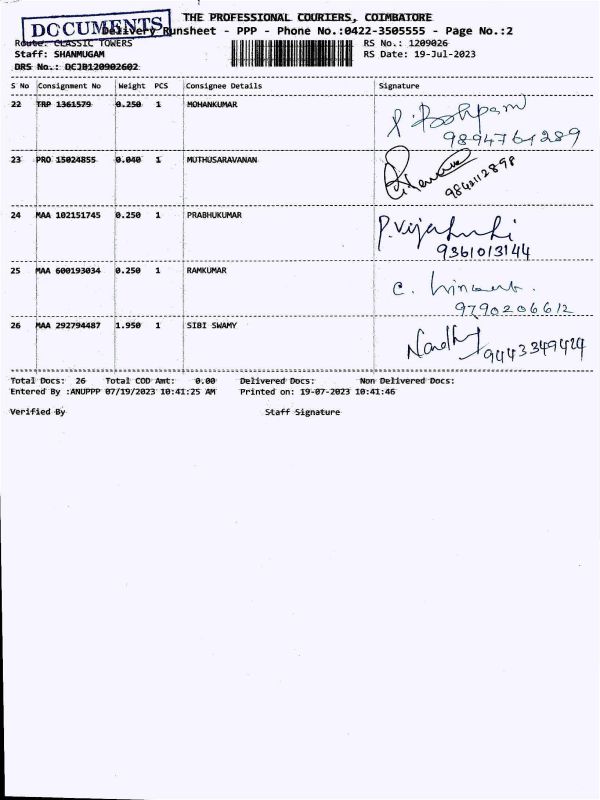 THE PROFESSIONAL COURIERS, COIMBATORE
DOCUMENTS
Delivery Runsheet - PPP - Phone No.:0422-3505555 - Page No.:2
Route: CLASSIC TOWERS RS No.: 1209026
Staff: SHANMUGAM RS Date: 19-Jul-2023
DRS No.: DCJB120902602
S No Consignment No Weight PCS Consignee Details Signature
22 TRP 1361579 0.250 1 MOHANKUMAR
9894761289
23 PRO 15024855 0.040 1 MUTHUSARAVANAN
9842112898
24 MAA 102151745 0.250 1 PRABHUKUMAR
9361013144
25 MAA 600193034 0.250 1 RAMKUMAR
9790206612
26 MAA 292794487 1.950 1 SIBI SWAMY
9443349424
Total Docs: 26 Total COD Amt: 0.00 Delivered Docs: Non Delivered Docs:
Entered By :ANUPPP 07/19/2023 10:41:25 AM Printed on: 19-07-2023 10:41:46
Verified By Staff Signature